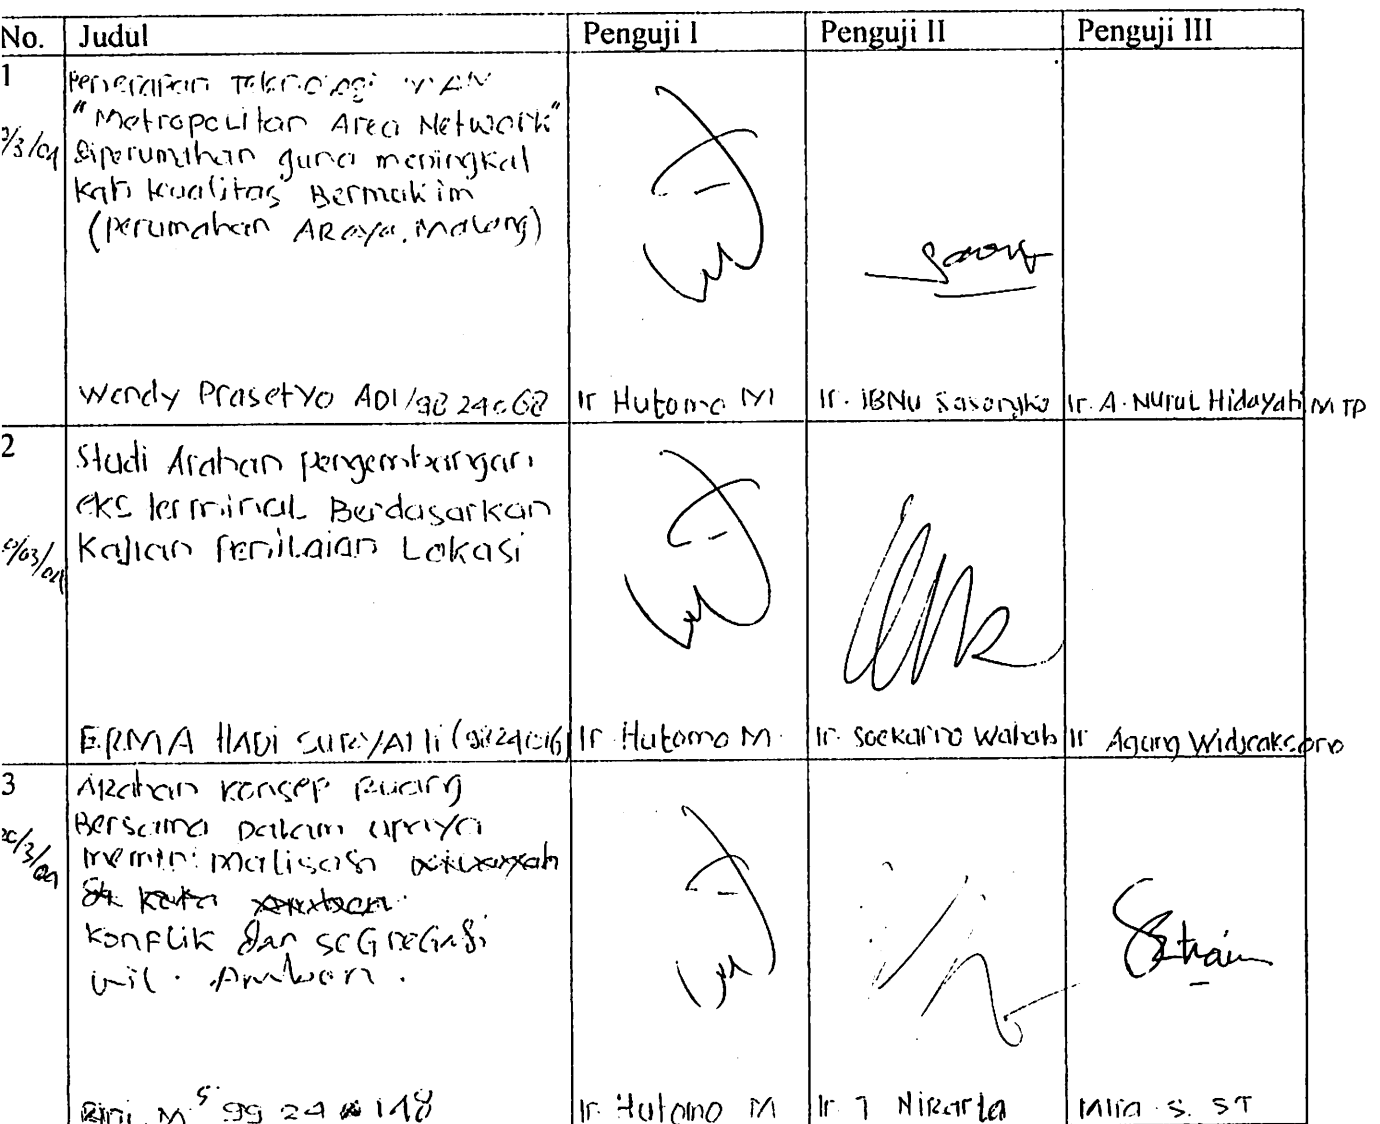 No. Judul Penguji I Penguji II Penguji III
1
Penerapan Teknologi MAN
"Metropolitan Area Network"
/3/04 diperumahan guna meningkat
kan kualitas Bermukim
(perumahan ARaya, Malang)
Wendy Prasetyo ADI/98 24 068 Ir Hutomo M Ir. IBNU Sasongko Ir. A. Nurul Hidayati MTP
2
Studi Arahan pengembangan
eks terminal Berdasarkan
/03/04 Kajian Penilaian Lokasi
ERMA HADI SURYATI (98 24 016 Ir. Hutomo M. Ir. Soekarno Wahab Ir Agung Widjcaksono
3
ARahan Konsep Ruang
Bersama Dalam upaya
/3/04 meminimalisasi
konflik dan seGreGasi
wil. Ambon.
Rini M 5 99 24 148 Ir. Hutomo M Ir. T Nirarta Mira. S. ST